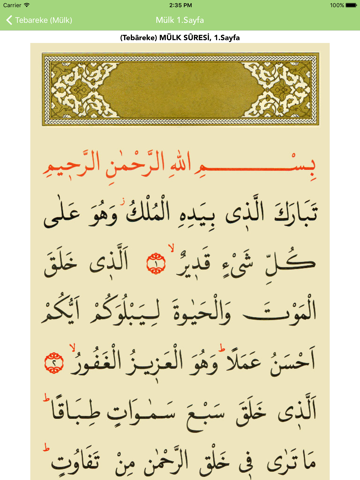 Carrier 2:35 PM 100%
Tebareke (Mülk) Mülk 1.Sayfa
(Tebâreke) MÜLK SÛRESİ, 1.Sayfa
بِسْمِ اللهِ الرَّحْمٰنِ الرَّحٖيمِ
تَبَارَكَ الَّذٖى بِيَدِهِ الْمُلْكُ ز وَهُوَ عَلٰى
كُلِّ شَیْءٍ قَدٖيرٌ ۙ ﴿١﴾ اَلَّذٖى خَلَقَ
الْمَوْتَ وَالْحَيٰوةَ لِيَبْلُوَكُمْ اَيُّكُمْ
اَحْسَنُ عَمَلًا ؕ وَهُوَ الْعَزٖيزُ الْغَفُورُ ۙ ﴿٢﴾
اَلَّذٖى خَلَقَ سَبْعَ سَمٰوَاتٍ طِبَاقًا ؕ
مَا تَرٰى فٖى خَلْقِ الرَّحْمٰنِ مِنْ تَفَاوُتٍ ؕ